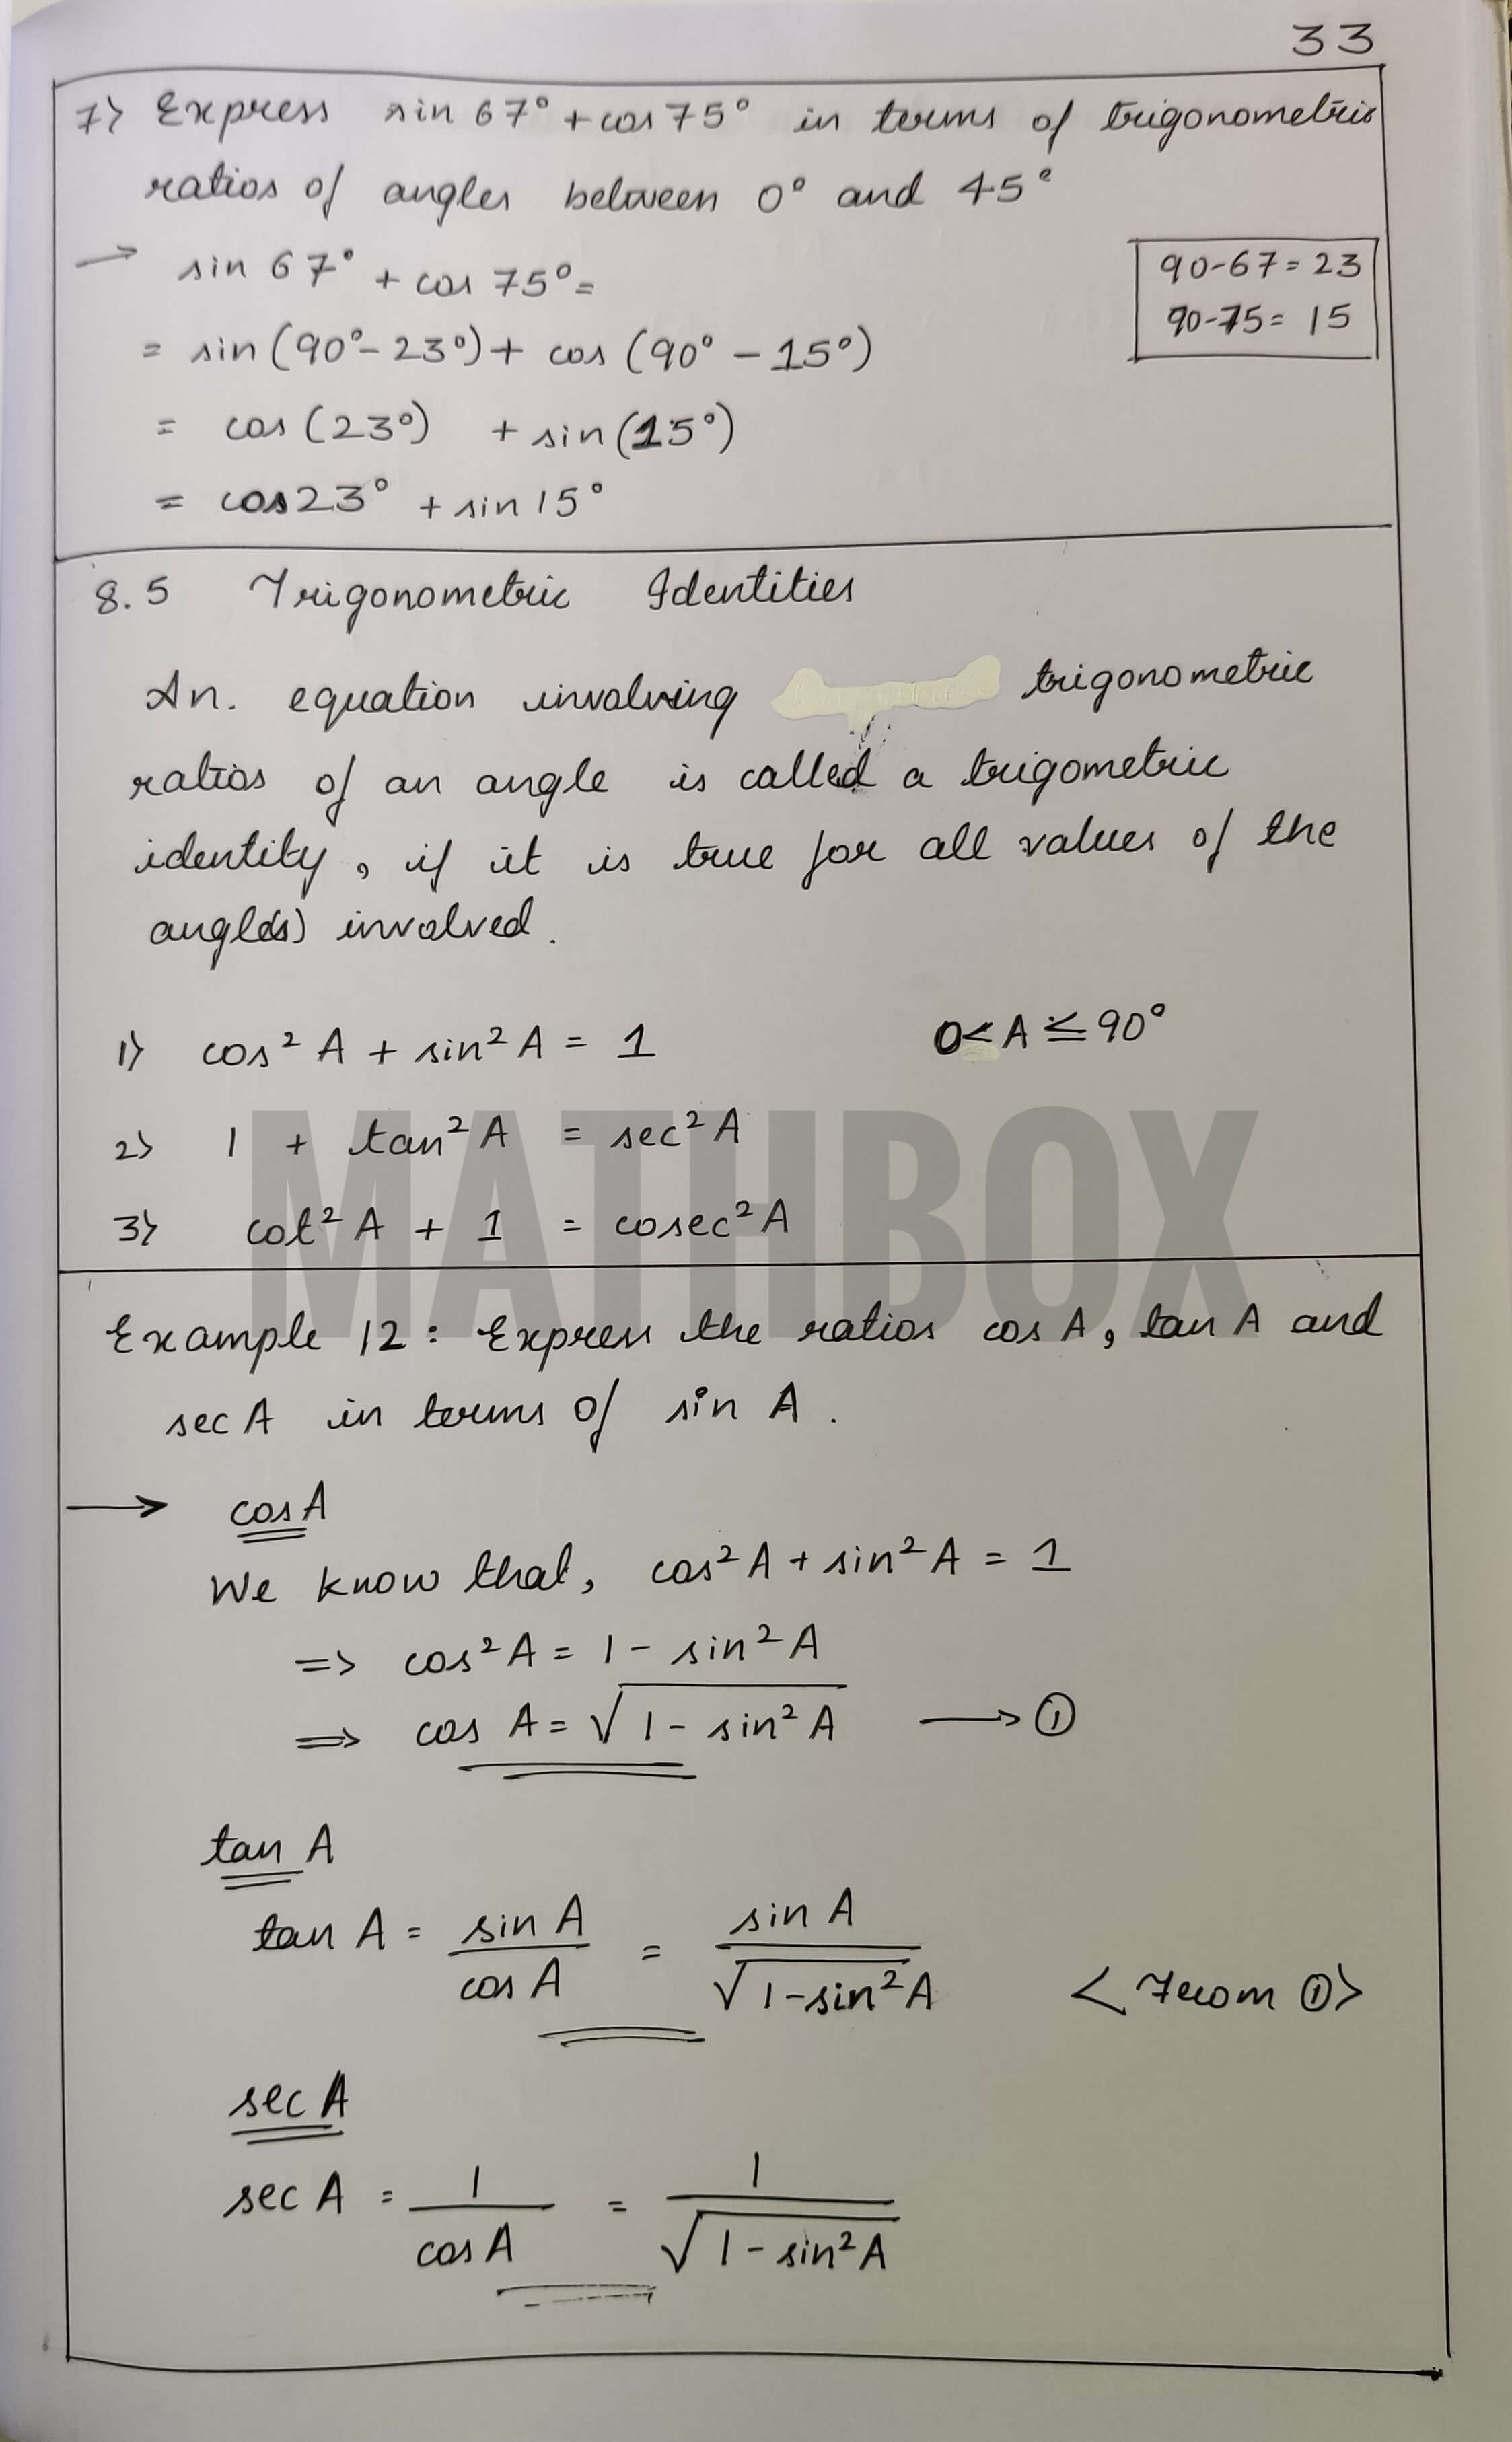 33
7> Express sin 67° + cos 75° in terms of trigonometric
ratios of angles between 0° and 45°
→ sin 67° + cos 75° =
90-67 = 23
90-75 = 15
= sin (90° - 23°) + cos (90° - 15°)
= cos (23°) + sin (15°)
= cos 23° + sin 15°
8.5 Trigonometric Identities
An. equation involving trigonometric
ratios of an angle is called a trigometric
identity, if it is true for all values of the
angle(s) involved.
1> cos² A + sin² A = 1 0< A ≤ 90°
2> 1 + tan² A = sec² A
3> cot² A + 1 = cosec² A
MATHBOX
Example 12 : Express the ratios cos A, tan A and
sec A in terms of sin A.
→ cos A
We know that, cos² A + sin² A = 1
=> cos² A = 1 - sin² A
=> cos A = √1 - sin² A → ①
tan A
tan A = sin A / cos A = sin A / √1 - sin² A <From ①>
sec A
sec A = 1 / cos A = 1 / √1 - sin² A